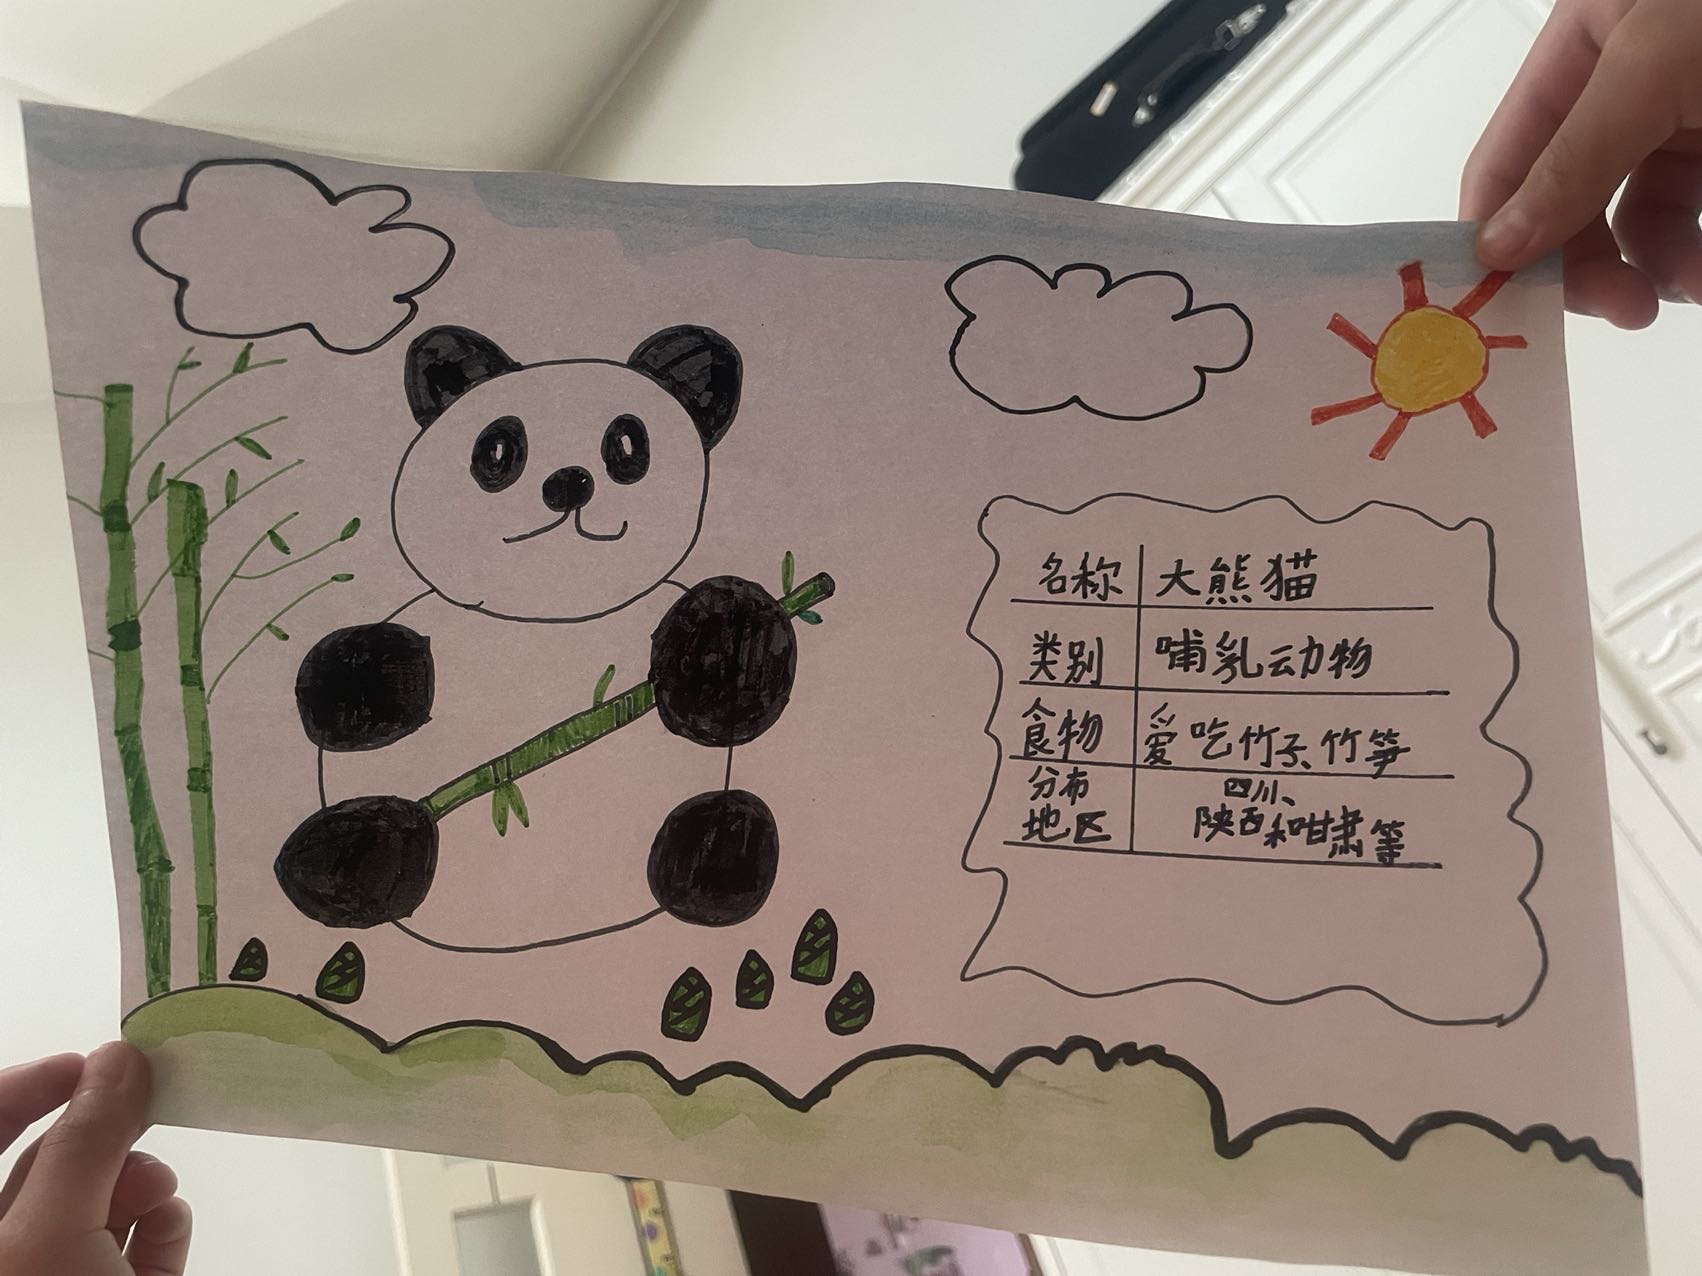 名称 大熊猫
类别 哺乳动物
食物 爱吃竹子、竹笋
分布
地区
四川、
陕西和甘肃等